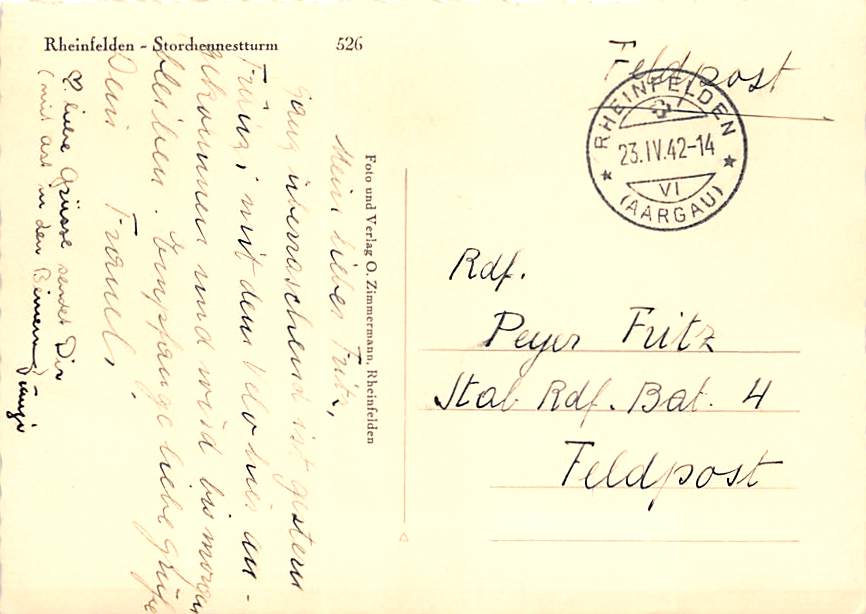 Rheinfelden - Storchennestturm 526
Feldpost
RHEINFELDEN
23.IV.42-14
VI
(AARGAU)
Rdf.
Peyer Fritz
Stab Rdf. Bat. 4
Feldpost
Foto und Verlag O. Zimmermann, Rheinfelden
Mein lieber Fritz,
Ganz überraschend ist gestern
mit dem Velo hier an-
gekommen und wird bis morgen
bleiben. Empfange liebe Grüsse
Dein
liebe Grüsse sendet Dir
(mit in den